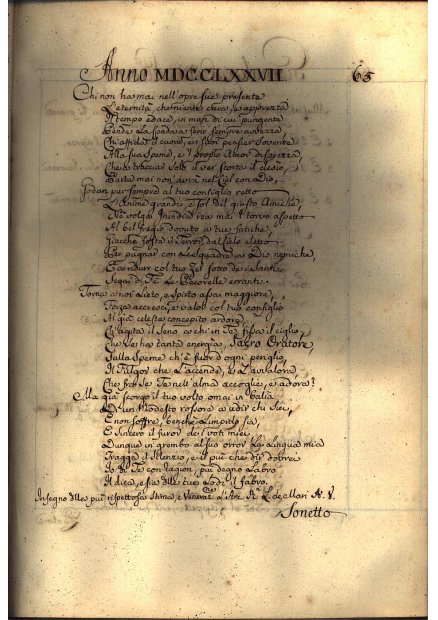 Anno MDCCLXXVII 65
Chi non ha mai nell'opre sue presente
L'eternità, che niente cura, e apprezza
Il tempo edace, in man di cui pungente
Pende la spada a ferir sempre avvezza
Alla sua speme, e 'l proprio Amor
Parte mai non avrà nel Ciel con Dio.
Godan pur sempre al tuo consiglio retto
L'Anime grandi, e sol del giusto Amiche,
Nè volga Invidia rea mai 'l torvo aspetto
Al bel fregio dovuto a tue fatiche,
Giacchè fosti 'l Terror dal Cielo eletto
Per pugnar con le squadre a Dio nemiche,
E condurr col tuo Zel sotto de' Santi
Segni di Fe le Pecorelle erranti.
Torna a noi lieto, e spirto assai maggiore,
Forza accresci, e valor col tuo consiglio
Al già celeste concepito ardore,
Ch'agita il seno a chi in Te fissa il ciglio,
Che se hai tanta energia, Sacro Oratore,
Sulla Speme ch'è fuor d'ogni periglio,
Il Fulgor che l'accende, e l'avvalora
Che fia se Te nell'alma accoglie, e adora?
Ma già scorgo il tuo volto omai in balia
D'un modesto rossore a udir chi sei,
E non soffre, benchè limpido sia,
E sincero il furor de' voti miei
Dunque in grembo al suo error la lingua mia
Tragga il silenzio, e il più che dir dovrei
Io di Te con ragion, più degno labro
Il dica, e sia delle tue lodi il fabro.
In segno della più rispettosa Stima, e Veneraz.ne L'Arc. L. de Mari N. V.
Sonetto